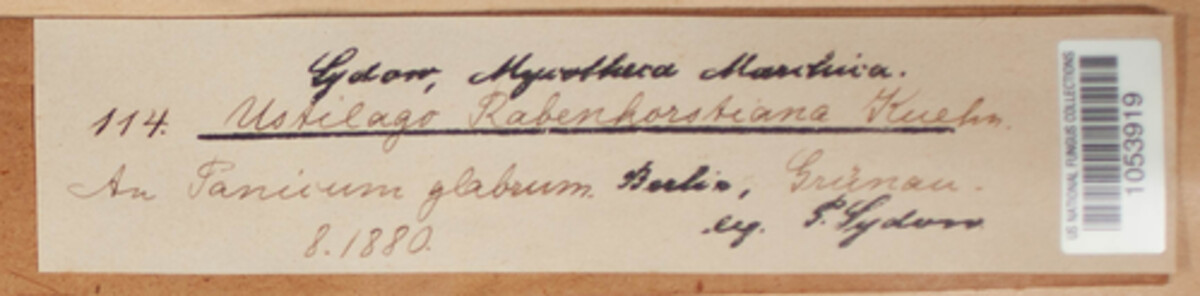 Sydow, Mycotheca Marchica.
114. Ustilago Rabenhorstiana Kuehn.
An Panicum glabrum. Berlin, Grünau.
leg. P. Sydow
8.1880.
US NATIONAL FUNGUS COLLECTIONS
1053919